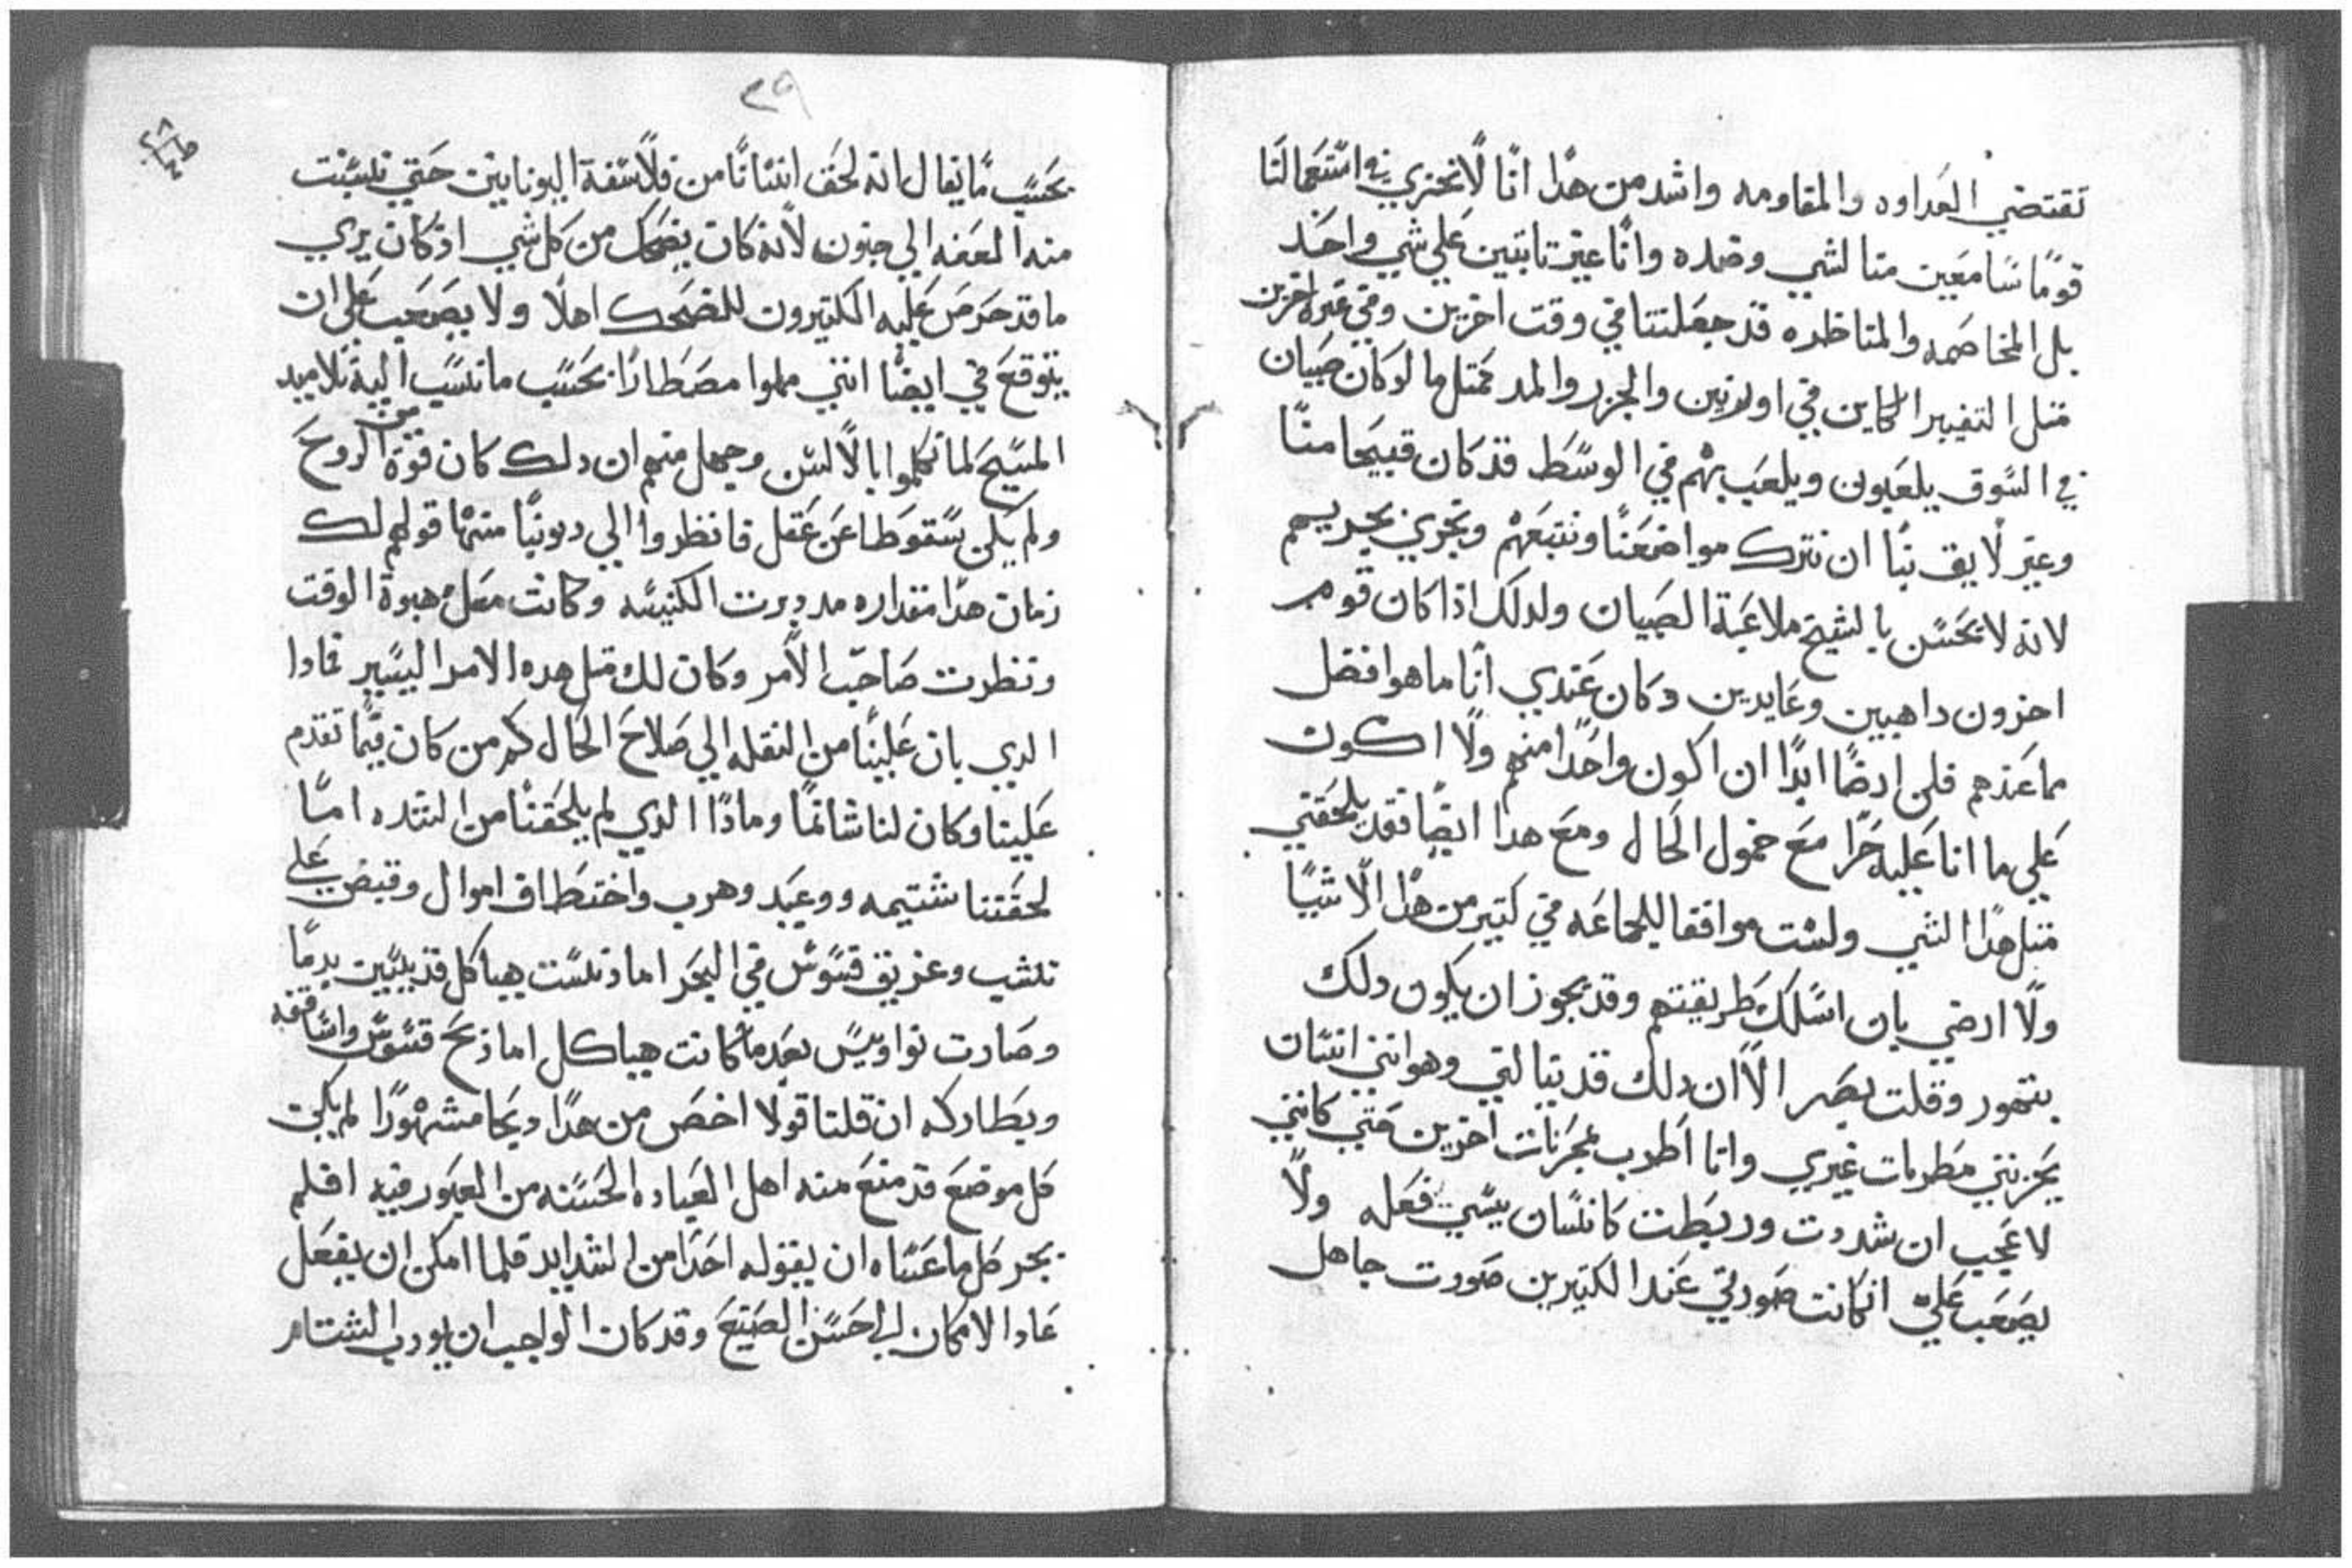 تقتضي العداوه والمقاومه واشد من هدا انا لا نجزي في استعمالنا
قوما سامعين منا الشي وضده وانا غير تابتين علي شي واحد
بل المخاصمه والمناظره قد جعلتنا في وقت اخرين وفي غيره اخرين
متل التغيير الكاين في اوريبن والجزر والمد فمتل ما لو كان صبيان
في السوق يلعبون ويلعب بهم في الوسط قد كان قبيحا منا
وغير لايق بنا ان نترك مواضعنا ونتبعهم ونجري بجريهم
لانه لا يحسن بالشيخ ملاعبة الصبيان ولدلك اذا كان قوم
اخرون داهبين وعايدين وكان عندي انا ما هو افضل
مما عندهم فلن ارضا ابدا ان اكون واحدا منهم ولا اكون
علي ما انا عليه حرا مع خمول الحال ومع هدا ايضا فقد يلحقني
متل هدا الشي ولست موافقا للجماعه في كتير من هدا الاشيا
ولا ارضي بان اسلك طريقتهم وقد يجوز ان يكون دلك
بتهور وقلت بصر الا ان دلك قد ينالني وهو انني انسان
يحزنني مطربات غيري وانا اطرب بمحزنات اخرين حتي كانني
لا عجب ان شددت وربطت كانسان يسي فعله ولا
يصعب علي ان كانت صورتي عند الكتيرين صورت جاهل
٣٩
بحسب ما يقال انه لحق انسانا من فلاسفة اليونانيين حتي نسبت
منه العفه الي جنون لانه كان يضحك من كل شي اذ كان يري
ما قد حرص عليه الكتيرون للضحك اهلا ولا يصعب علي ان
يتوقع في ايضا انني مملوا مصطارا بحسب ما نسب اليه تلاميد
المسيح لما تكلموا بالالسن وجهل منهم ان دلك كان قوة من الروح
ولم يكن سقوطا عن عقل فانظروا الي ديوننا منها قولهم لك
زمان هدا مقداره مد دبرت الكنيسه وكانت معك هبوة الوقت
ونظرت صاحب الامر وكان لك متل هده الامر اليسير فمادا
الدي بان علينا من النقله الي صلاح الحال كم من كان فيما تقدم
علينا وكان لنا شاتما ومادا الدي لم يلحقنا من الشده اما
لحقتنا شتيمه ووعيد وهرب واختطاف اموال وقبض علي
نشب وغريق قسوس في البحر اما دنست هياكل قديسين بدما
وصارت نواويس بعد ما كانت هياكل اما ذبح قسوس واساقفه
وبطاركه ان قلنا قولا اخص من هدا ديحا مشهورا لم يكن
كل موضع قد منع منه اهل العباده الحسنه من العبور فيه افلم
يجر كل ما عساه ان يقوله احد من الشدايد قلما امكن ان يفعل
عاد الامكان الي احسن الصنيع وقد كان الواجب ان يودب الشتام